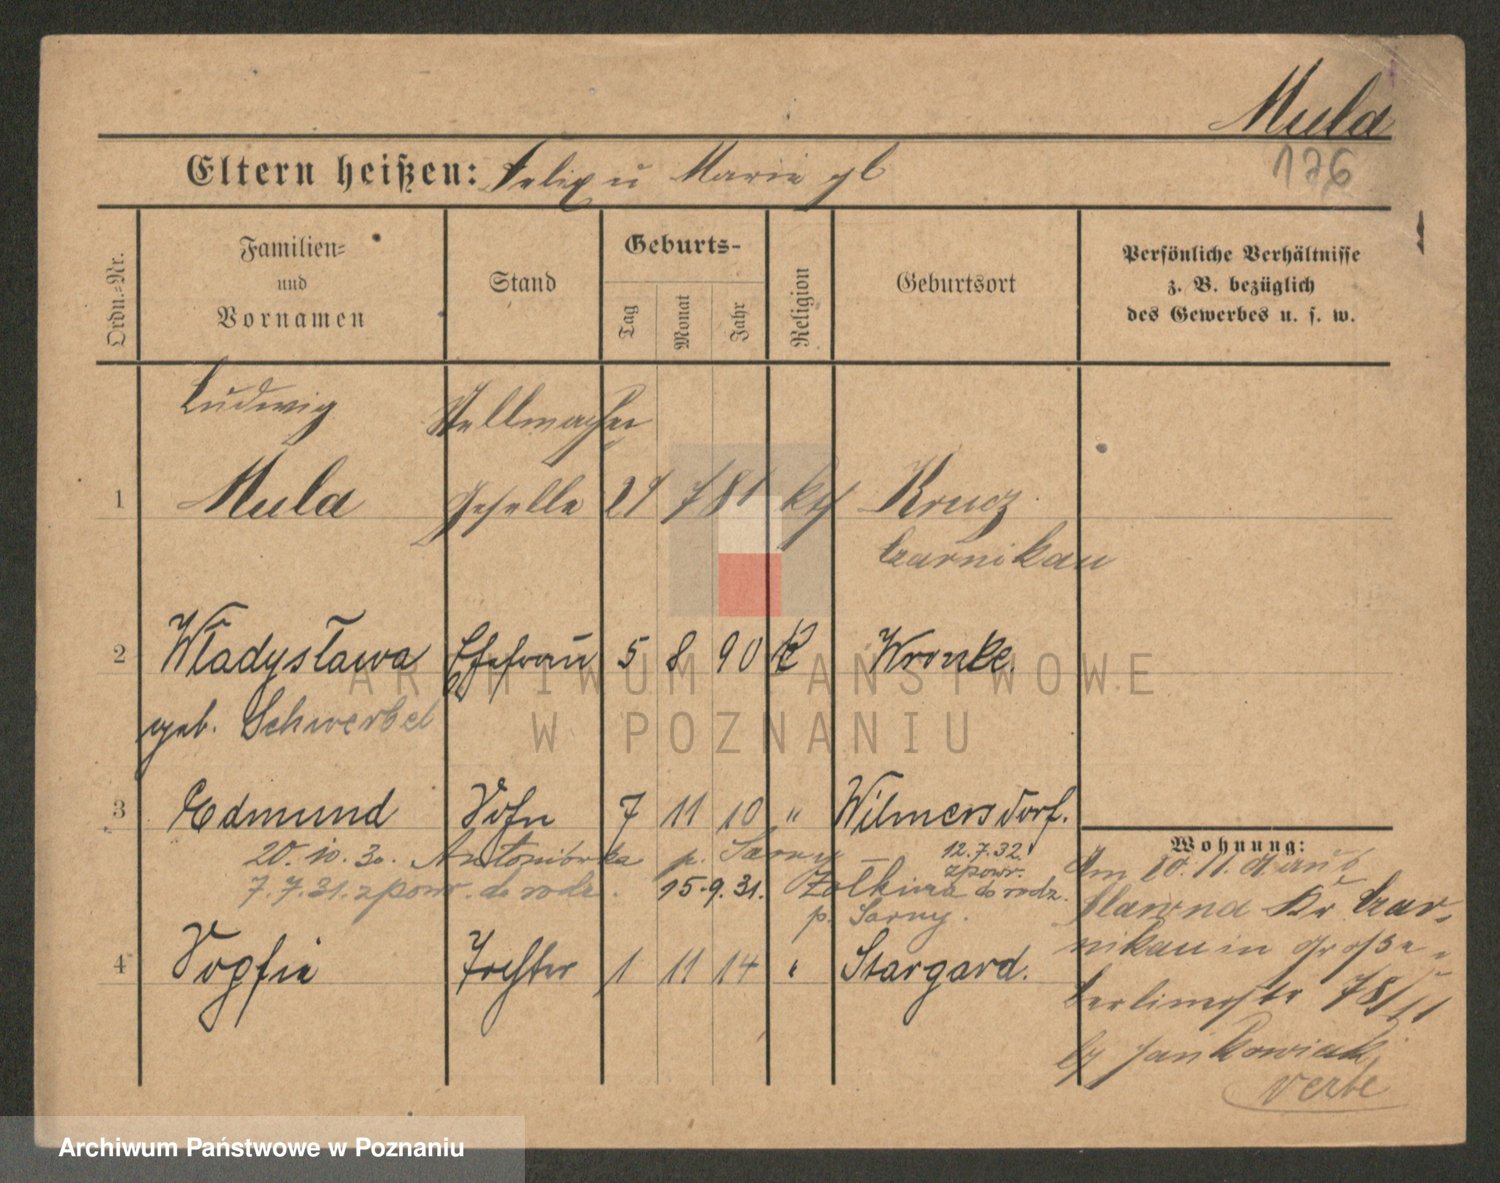 Mula
176
Eltern heißen: Felix u Marie gb
Ordn.-Nr.
Familien- und Vornamen
Stand
Geburts-
Tag
Monat
Jahr
Religion
Geburtsort
Persönliche Verhältnisse
z. B. bezüglich
des Gewerbes u. s. w.
Ludwig Stellmacher
1 Mula Geselle 24 7 81 kth Krucz
Czarnikau
2 Władysława Ehefrau 5 8 90 K Wronke.
geb. Schwerbel
3 Edmund Sohn 7 11 10 " Wilmersdorf.
20. 10. 30. Antoniówka p. Sarny 12.7.32.
zpowr.
7.7.31. zpowr. do rodz. 15.9.31. Żołkiewa do rodz.
p. Sarny.
4 Sophie Tochter 1 11 14 " Stargard.
Wohnung:
Am 10. 11. 9 aus
Kr Czar-
nikau in Große
Berlinerstr 78/II
by Jankowiak
verte
ARCHIWUM PAŃSTWOWE
W POZNANIU
Archiwum Państwowe w Poznaniu